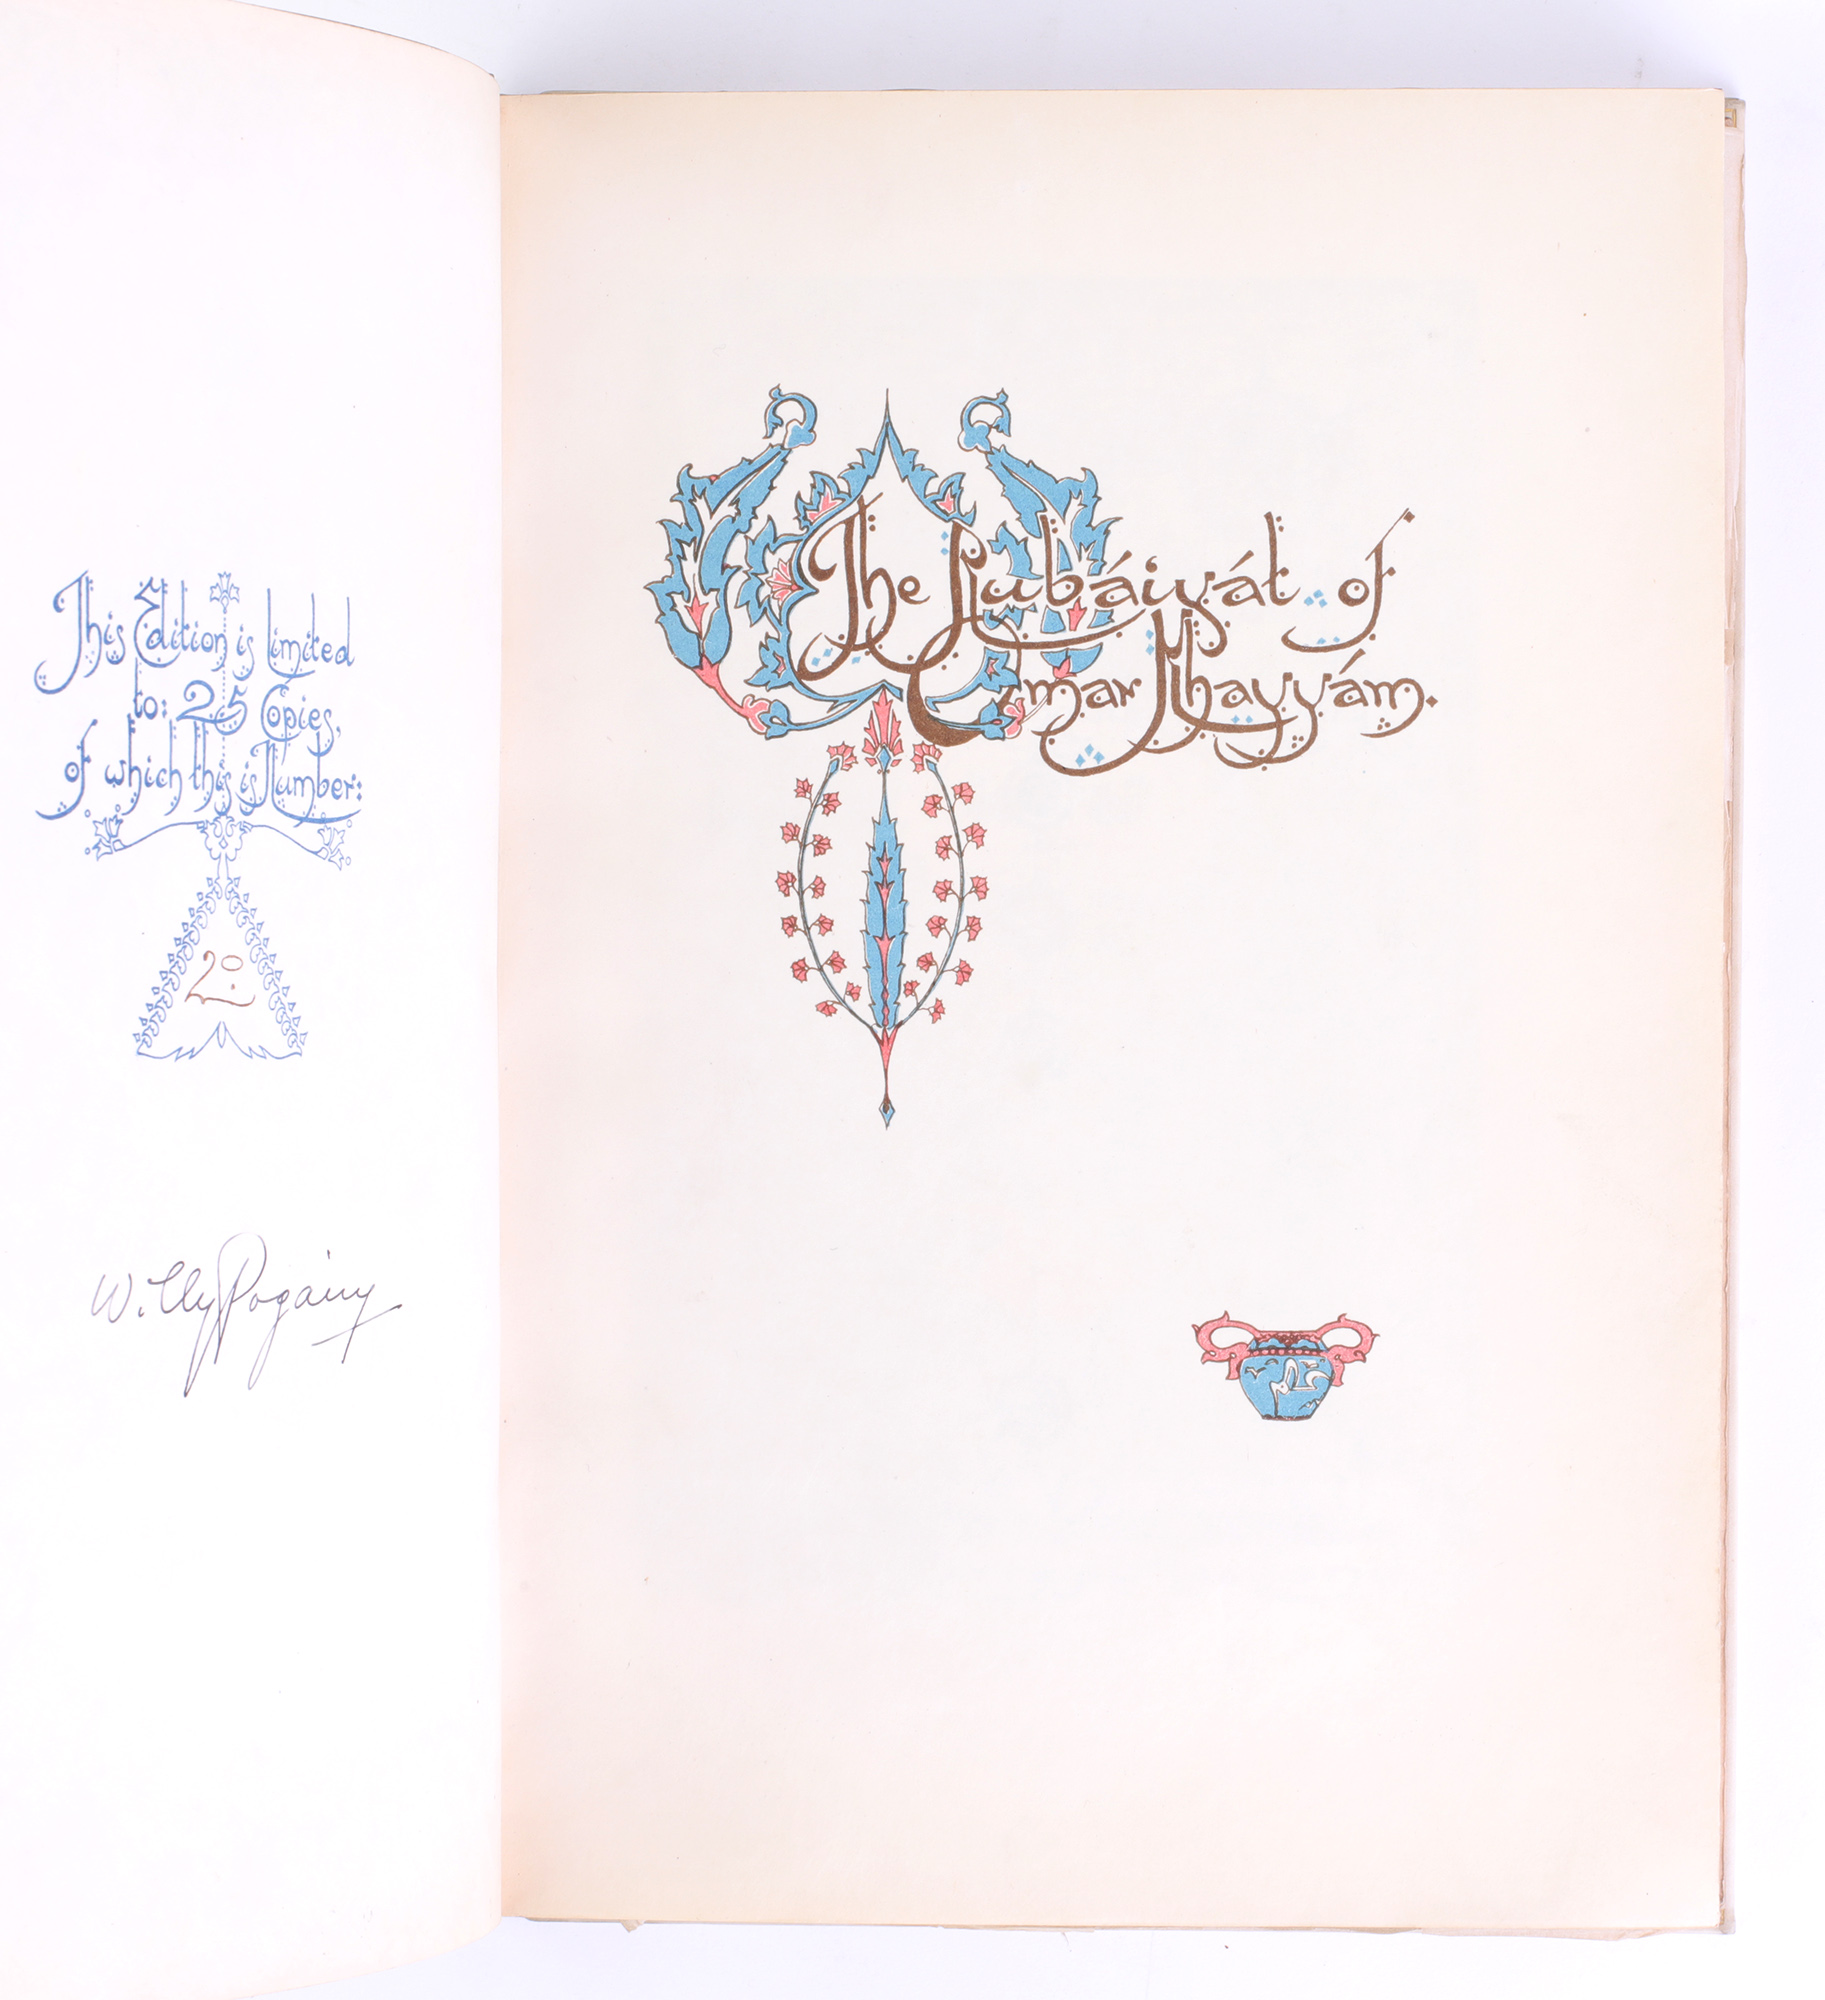 This Edition is limited
to: 25 Copies,
of which this is Number:
20.
Willy Pogány
The Rubáiyát of
Omar Khayyám.